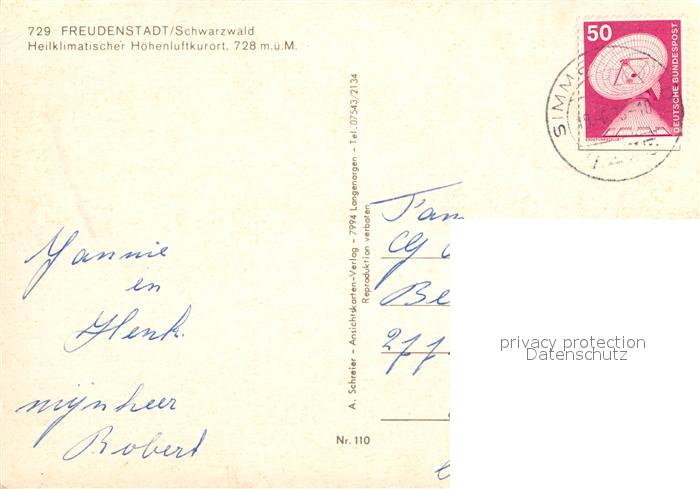 729 FREUDENSTADT/Schwarzwald
Heilklimatischer Höhenluftkurort, 728 m.ü.M.
50
DEUTSCHE BUNDESPOST
SIMM
A. Schreier - Ansichtskarten-Verlag - 7994 Langenargen - Tel. 07543/2134
Reproduktion verboten
Jannie
en
Henk.
mijnheer
Robert
Fam
Be
277
Nr. 110
privacy protection
Datenschutz